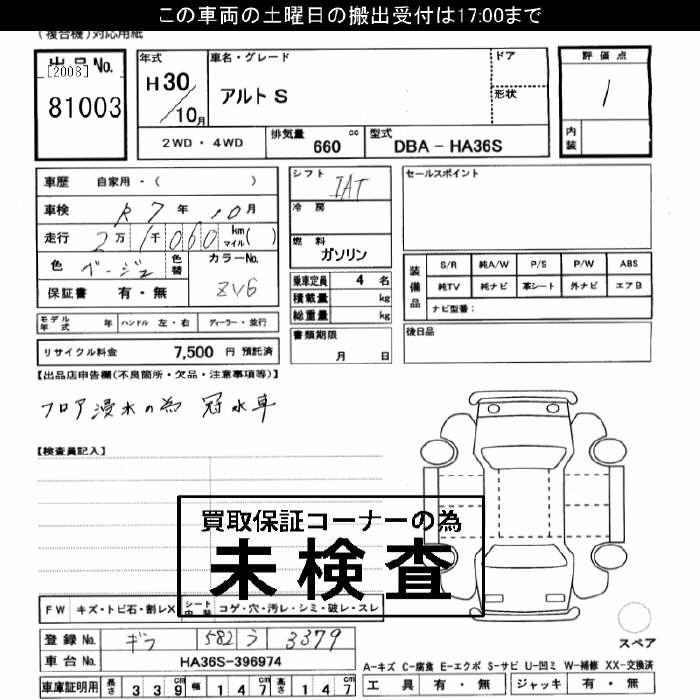 この車両の土曜日の搬出受付は17:00まで
(複合機)対応用紙
出品No.
[2008]
81003
年式
H30/10月
車名・グレード
アルト S
ドア
形状
評価点
1
内装
2WD・4WD
排気量 660 cc
型式 DBA - HA36S
車歴 自家用・( )
車検 R7年10月
走行 2万1千060 km マイル( )
色 ベージュ 色替 カラーNo. ZV6
保証書 有・無
シフト IAT
冷房
燃料 ガソリン
乗車定員 4 名
積載量 kg
総重量 kg
セールスポイント
装備品
S/R 純A/W P/S P/W ABS
純TV 純ナビ 革シート 外ナビ エアB
ナビ型番:
モデル年式 年 ハンドル 左・右 ディーラー・並行
書類期限 月 日
後日品
リサイクル料金 7,500 円 預託済
【出品店申告欄(不良箇所・欠品・注意事項等)】
フロア浸水の為 冠水車
【検査員記入】
買取保証コーナーの為
未検査
FW キズ・トビ石・割レX シート内装 コゲ・穴・汚レ・シミ・破レ・スレ
登録No. ギフ 582 ラ 3379
車台No. HA36S-396974
車庫証明用 長さ 339 幅 147 高さ 147
スペア
A-キズ C-腐食 E-エクボ S-サビ U-凹ミ W-補修 XX-交換済
工具 有・無 ジャッキ 有・無